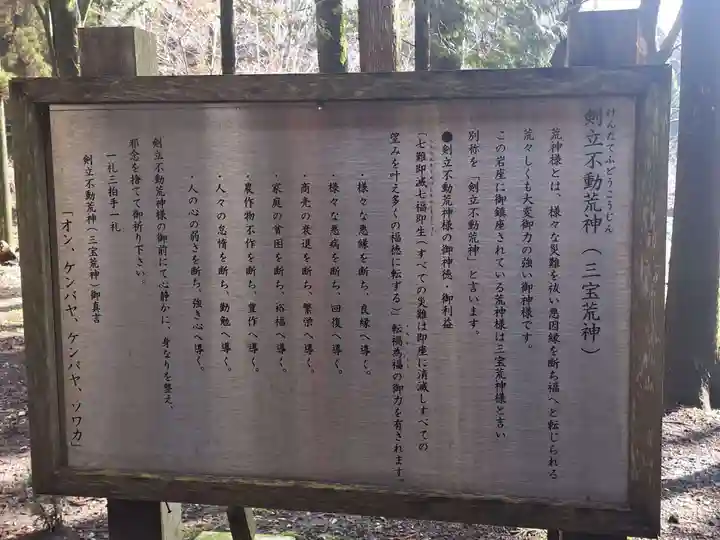 けんたてふどうこうじん
剣立不動荒神（三宝荒神）
荒神様とは、様々な災難を祓い悪因縁を断ち福へと転じられる
荒々しくも大変御力の強い御神様です。
この岩座に御鎮座されている荒神様は三宝荒神様と言い
別称を「剣立不動荒神」と言います。
●剣立不動荒神様の御神徳・御利益
（七難即滅七福即生（すべての災難は即座に消滅しすべての
望みを叶え多くの福徳に転する）転禍為福の御力を有されます。
・様々な悪縁を断ち、良縁へ導く。
・様々な悪病を断ち、回復へ導く。
・商売の衰退を断ち、繁栄へ導く。
・家庭の貧困を断ち、裕福へ導く。
・農作物不作を断ち、豊作へ導く。
・人々の怠惰を断ち、勤勉へ導く。
・人の心の弱さを断ち、強き心へ導く。
剣立不動荒神様の御前にて心静かに、身なりを整え、
邪念を捨てて御祈り下さい。
一礼三拍手一礼
剣立不動荒神（三宝荒神）御真言
「オン、ケンバヤ、ケンバヤ、ソワカ」